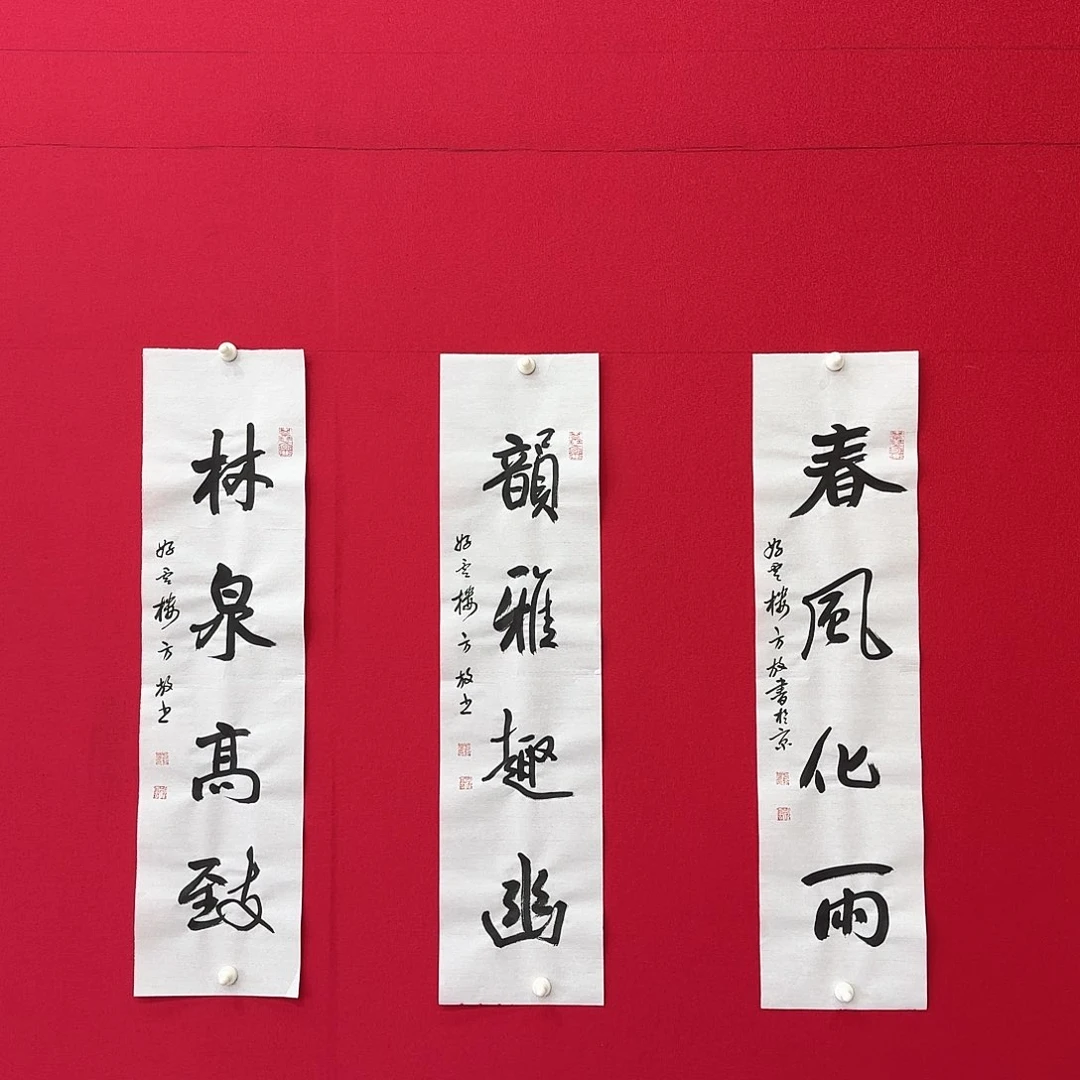 春風化雨
好雲樓方放書於京
韻雅趣幽
好雲樓方放书
林泉高致
好雲樓方放书